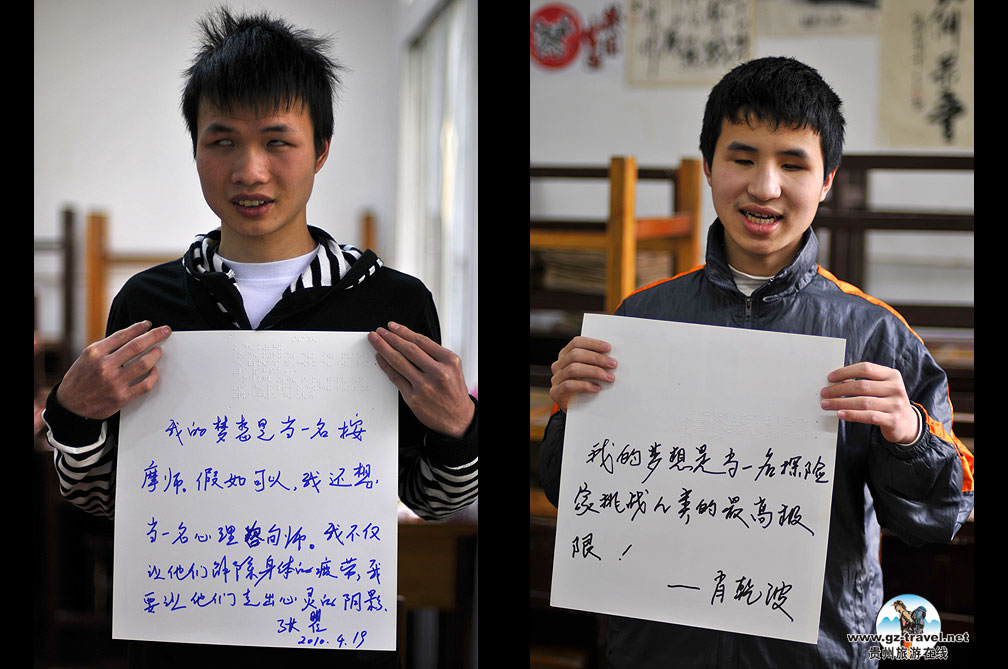 我的梦想是当一名按
摩师。假如可以,我还想
当一名心理咨询师。我不仅
让他们解除身体的疲劳,我
要让他们走出心灵的阴影。
2010.4.19
我的梦想是当一名探险
家挑战人类的最高极
限!
——肖乾波
www.gz-travel.net
贵州旅游在线